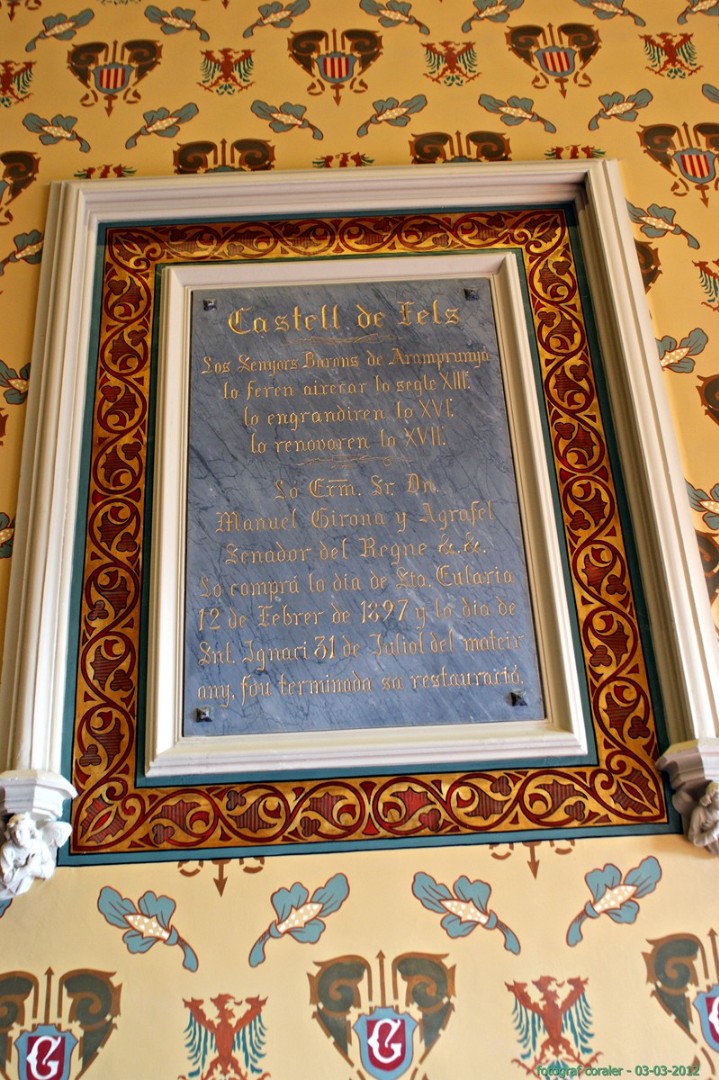 Castell de Fels
Los Senyors Barons de Aramprunyá
lo feren aixecar lo segle XIII.
lo engrandiren lo XVI.
lo renovaren lo XVII.
Lo Ecm. Sr. Dn.
Manuel Girona y Agrafel
Senador del Regne &. &.
Lo comprá lo dia de Sta. Eularia
12 de Febrer de 1897 y lo dia de
Snt. Ignaci 31 de Juliol del mateix
any, fou terminada sa restauració.
G
G
fotògraf coraler - 03-03-2012